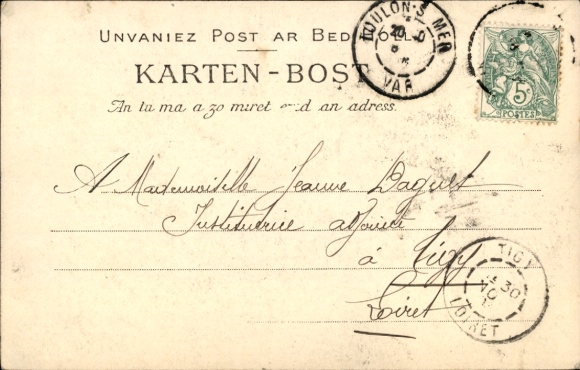 UNVANIEZ POST AR BED HOLL
KARTEN-BOST
An tu ma a zo miret evid an adress.
TOULON-S-MER
VAR
5c
POSTES
A Mademoiselle Jeanne Daguet
Institutrice adjointe
à Tigy
Loiret
TIGY
30
10
LOIRET